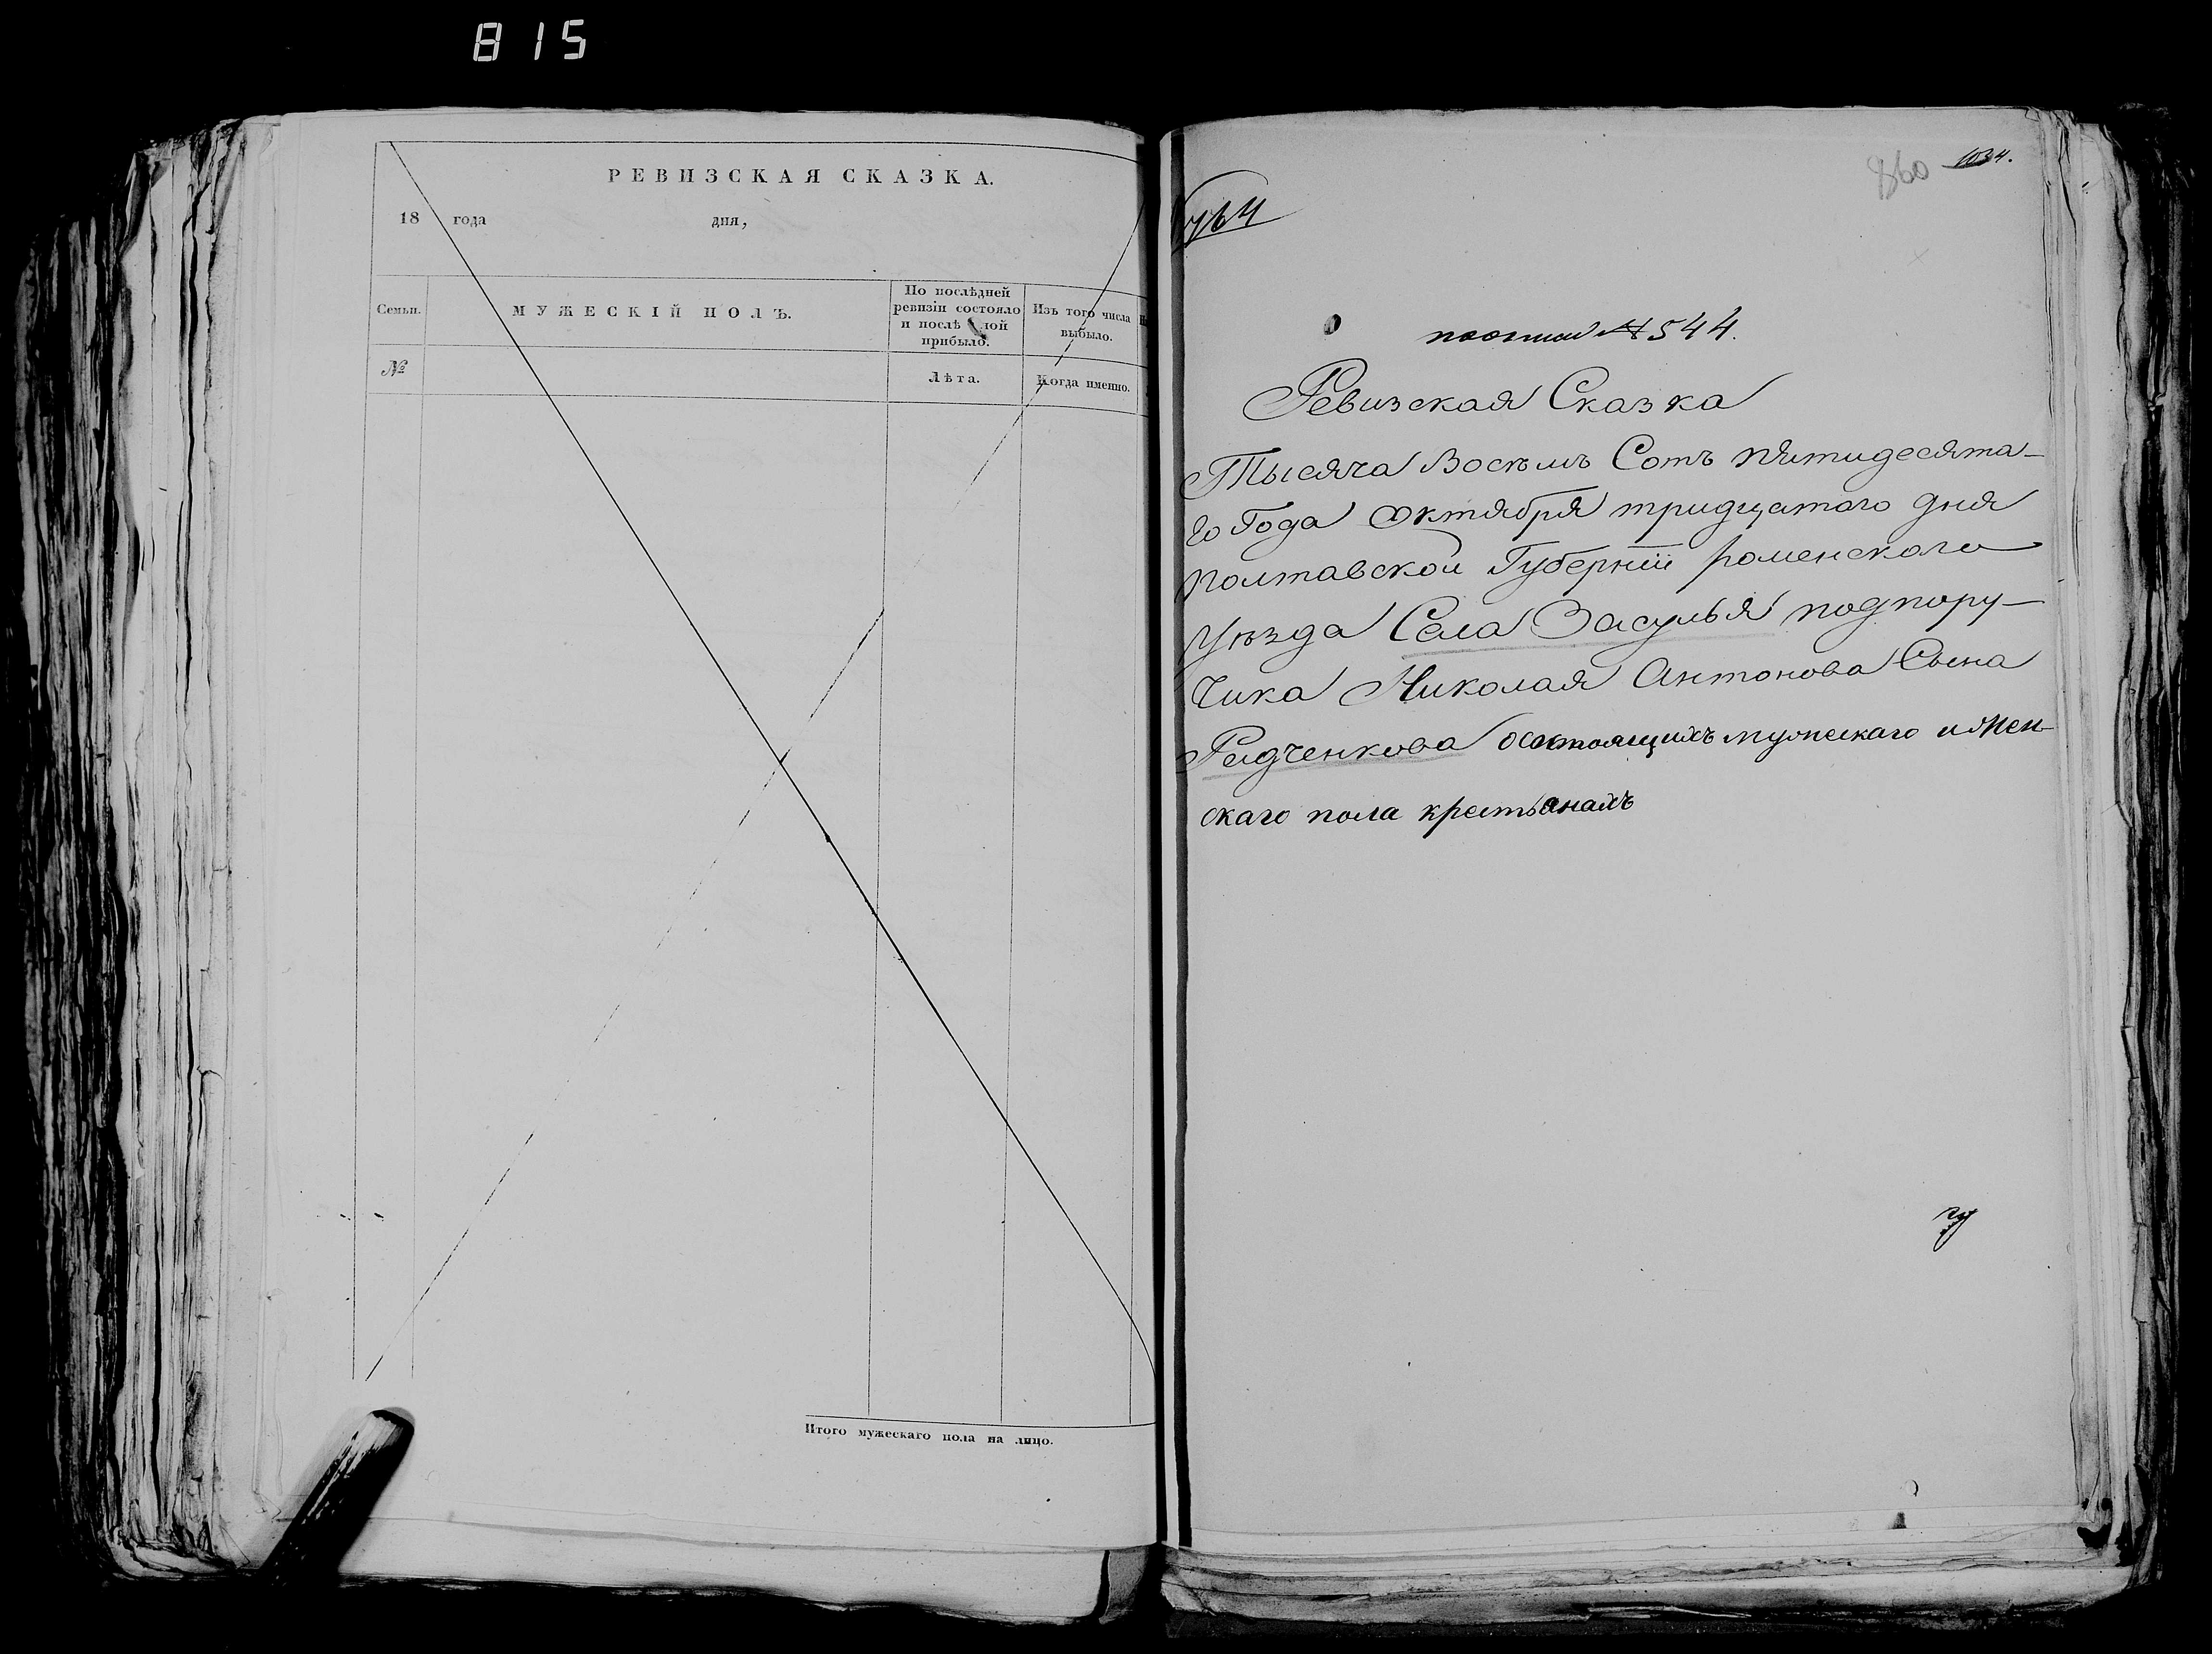 815
РЕВИЗСКАЯ СКАЗКА.
18 года дня,
Семьи.
МУЖЕСКІЙ ПОЛЪ.
По послѣдней
ревизіи состояло
и послѣ лой
прибыло.
Изъ того числа
выбыло.
№
Лѣта.
Когда именно.
Итого мужескаго пола на лицо.
860 1034.
764
№ 544.
Ревизская Сказка
Тысяча Восѣмъ Сотъ пятидесята-
го Года октября тридцатого дня
Полтавской Губерніи роменского
Уѣзда Села Засулья подпору-
чика Николая Антонова Сына
Редченкова о состоящихъ мужескаго и жен
скаго пола крестьянахъ